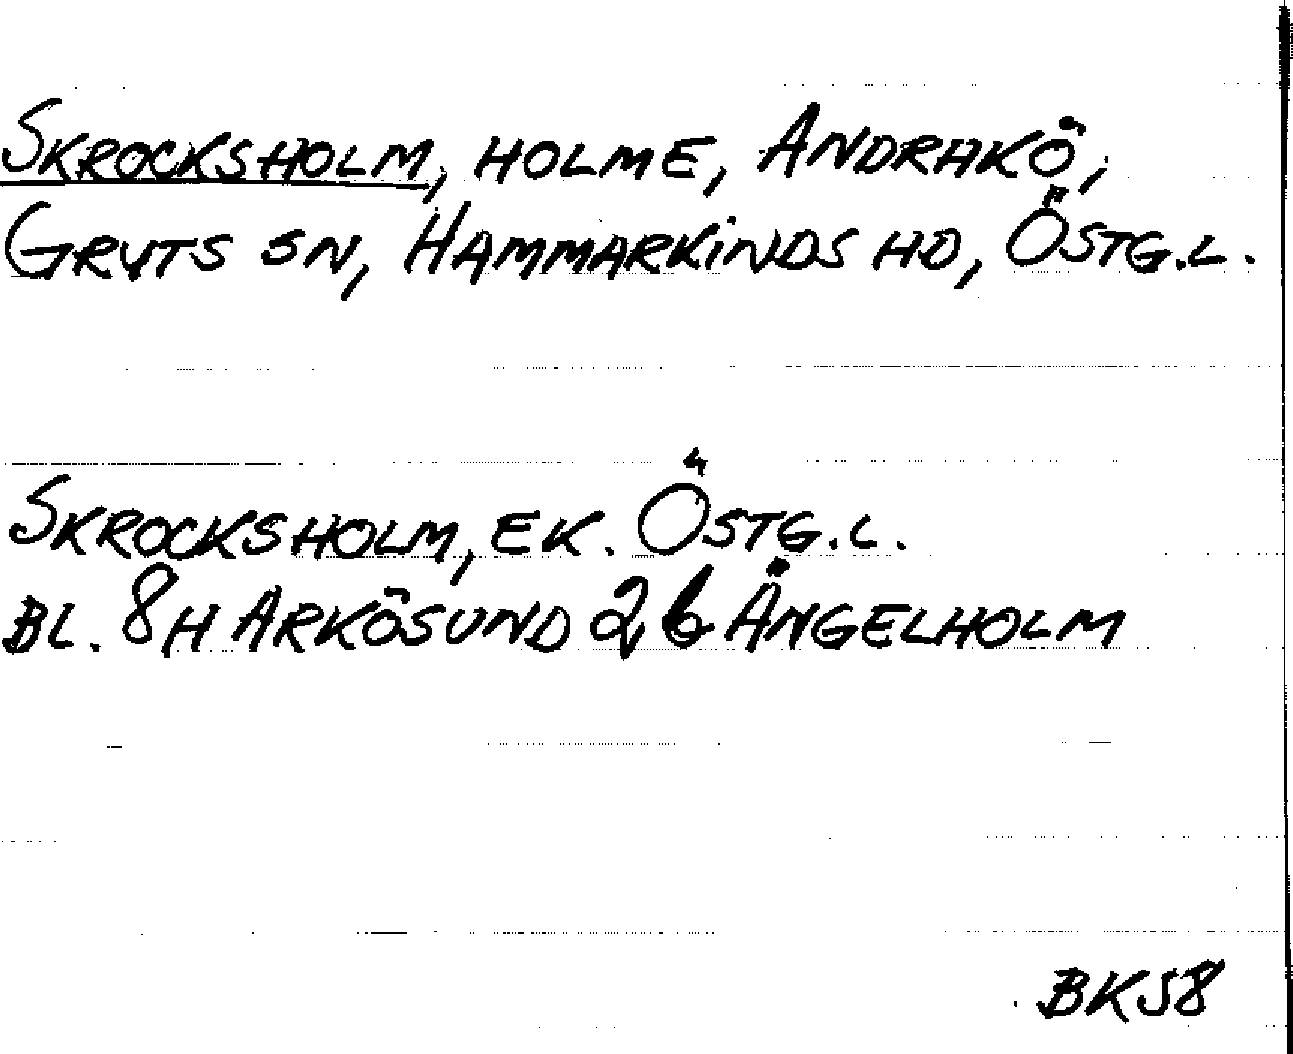 SKROCKSHOLM, HOLME, ANDRAKÖ,
GRYTS SN, HAMMARKINDS HD, ÖSTG.L.
SKROCKSHOLM, EK. ÖSTG.L.
BL. 8H ARKÖSUND 2b ÄNGELHOLM
BKS8